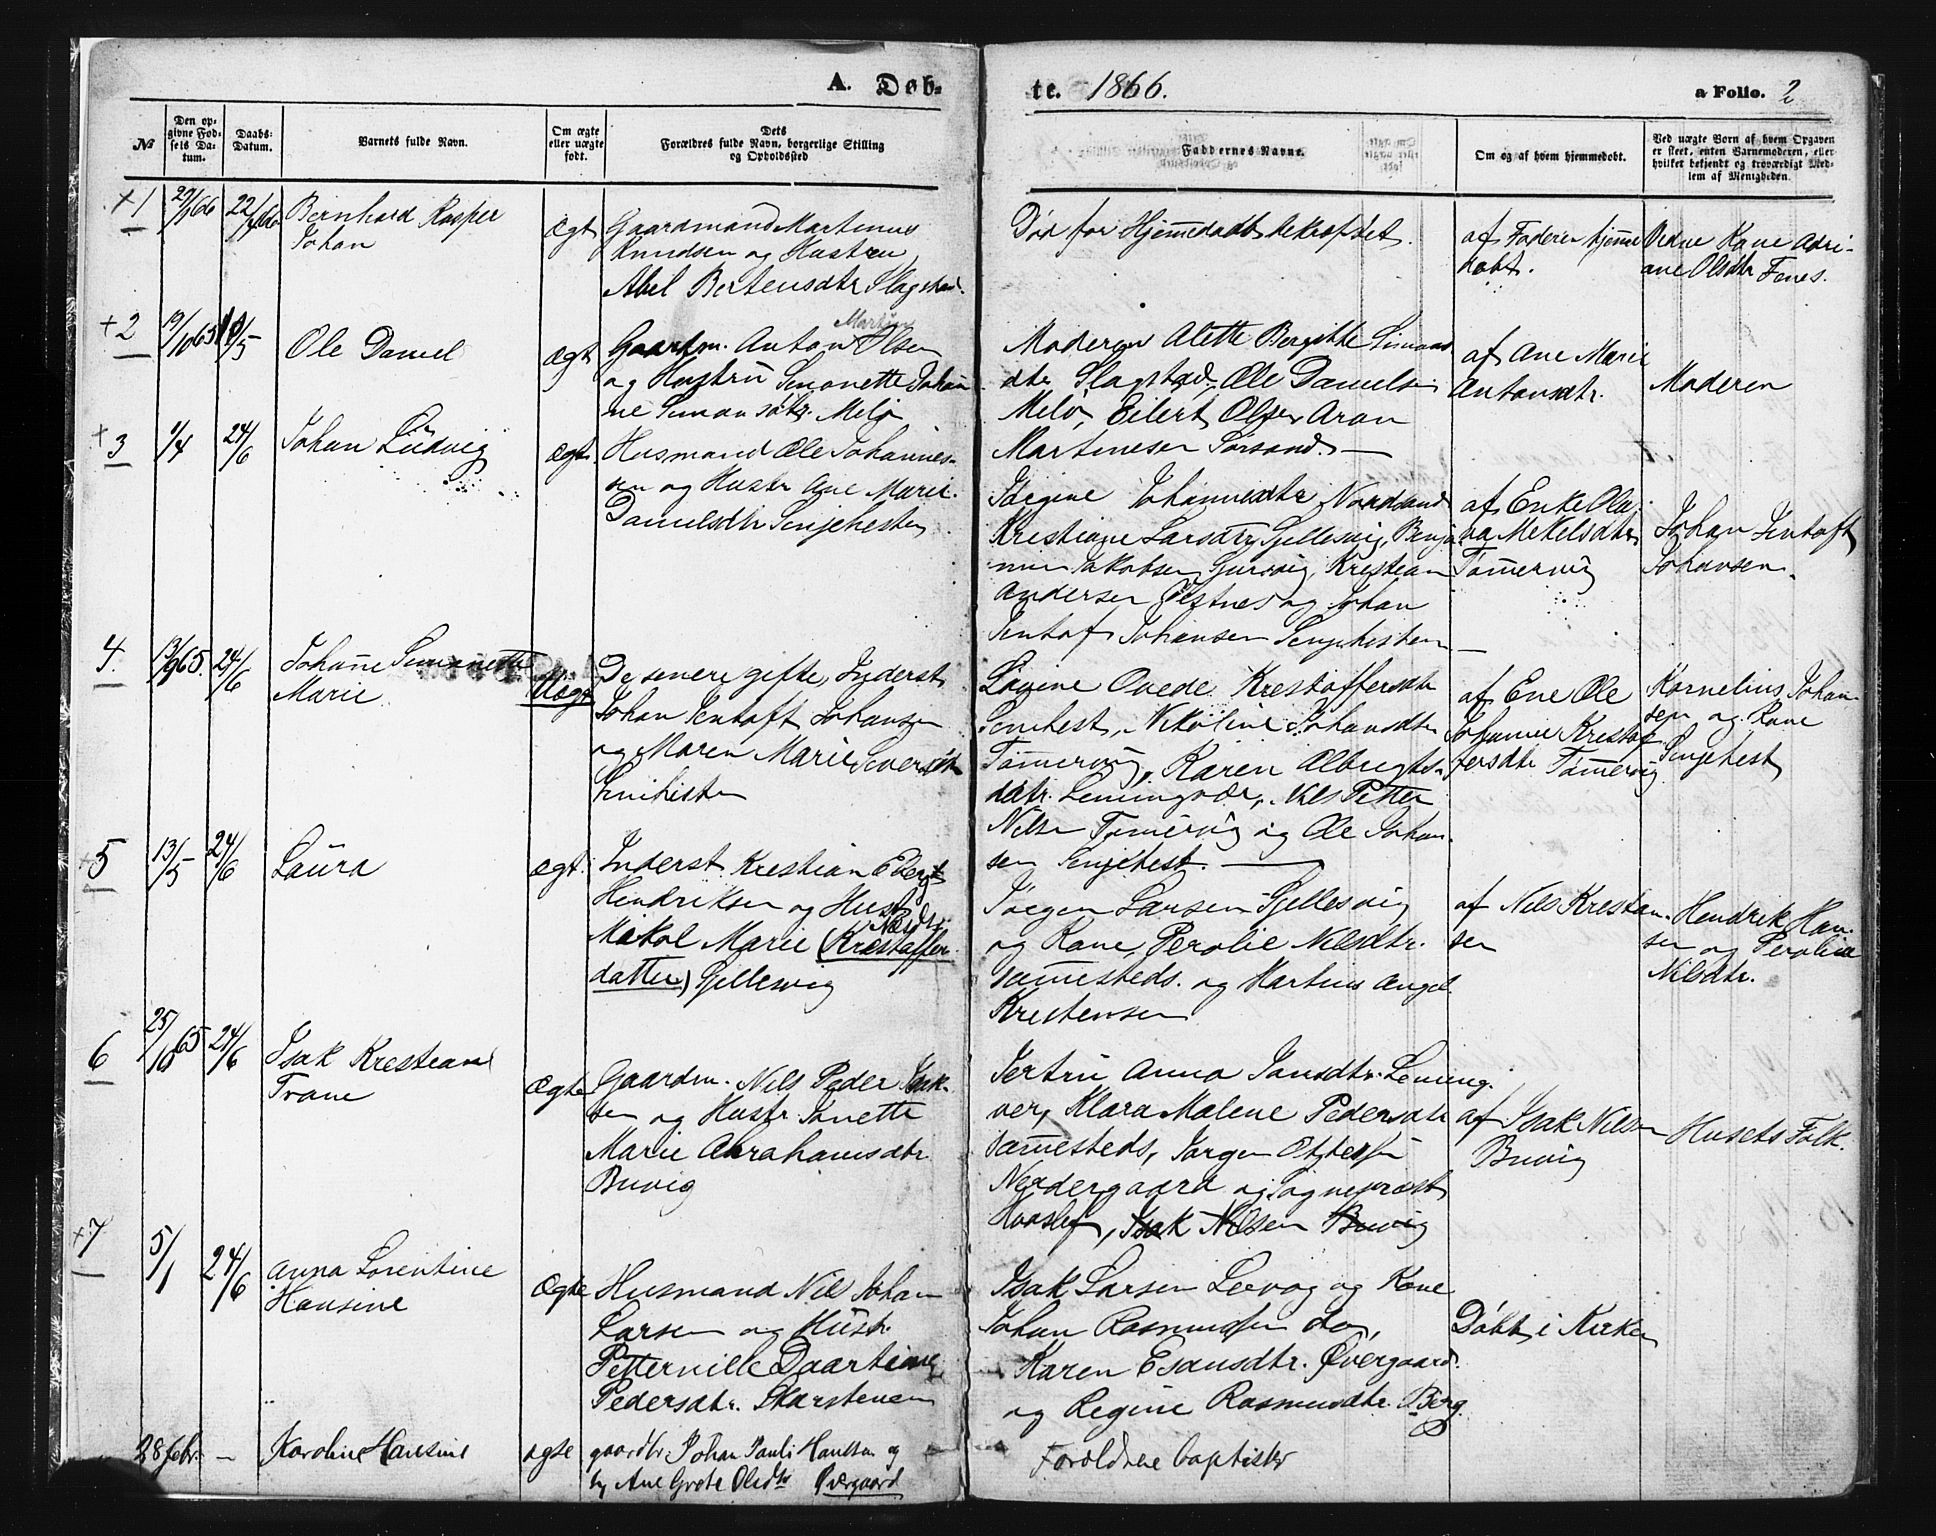 A. Døb-
te. 1866.
a Folio. 2
№
Den op-
givne Fød-
sels Da-
tum.
Daabs-
Datum.
Varnets fulde Navn.
Om ægte
eller uægte
født.
Dets
Forældres fulde Navn, borgerlige Stilling
og Opholdssted
Faddernes Navne.
Om og af hvem hjemmedøbt.
Ved uægte Børn af hvem Opgaven
er skeet, enten Barnemoderen, eller
hvilket bekjendt og troværdigt Med-
lem af Menigheden.
+1
22/4 66
Bernhard Kasper
Johan
Ægt
Gaardmand Martinus
Knudsen og Hustru
Abel Bertensdtr Slagstad.
Død før Hjemmedaab bekræftet.
af Faderen hjemme
døbt.
Kone Adri-
ane Olsdtr Fenes.
+2
19/10 65
Ole Daniel
Ægt
Gaardm. Anton Martin Olsen
og Hustrü Simonette Johan
ne Simonsdtr. Melø
Moderen Alette Bergitte Simons
dtr Slagstad, Ole Daniels
Melø, Eilert Olsen Aron
Martinesen Sørsand. —
af Ane Marie
Antonsdtr.
Moderen
+3
1/4
24/6
Johan Lüdvig
Ægt.
Husmand Ole Johannes-
sen og Hustr Ane Marie
Danielsdtr Senjehesten
Johannesdtr Nordsand
Krestiane Larsdtr Gjellesvig, Benja
min Jakobsen, Krestian
Andersen Østnes og Johan
Jentof Johansen Senjehesten —
af Enke Ole
na Mekelsdtr
Tømmervig
Johan Jentoft
Johansen.
4.
13/9 65.
24/6
Johanne Simonette
Marie
Uægt
De senere gifte, Inderst
Johan Jentoft Johansen
og Maren Marie Siversdtr
Senihesten
Lovine Ovede Krestoffersdtr
Senihest, Nikoline Johansdtr
Tømmervig, Karen Albregts-
datr. Lemingvær, Nils Petter
Nilsn Tømervig og Ole Johan-
sen Senjehest. —
af Ene Ole
Johanne Krestof
fersdtr Tømmervig
Kornelius Johan
sen og Kone
Senjehest
+5
13/5
24/6
Laüra
Ægt.
Inderst Krestian Edevgt
Hendriksen og Hust
Mekol Marie (Krestoffer
datter) Nilsdtr. Gjellesvig
Jørgen Larsen Gjellesvig
og Kone, Perolie Nilsdtr.
sammesteds. og Hartvis Angel
Krestensen
af Nils Krestian-
sen
Hendrik Han-
sen og Perolia
Nilsdtr.
6
25/10 65
24/6
Isak Krestian
Trane
Ægte
Gaardm. Nils Peder Isak-
sen og Hustr. Janette
Marie Abrahamsdtr.
Buvig
Jertru Anna Jansdtr. Leming-
vær, Klara Malene Pedersdtr
sammesteds, Jørgen Ottesen
Nordergaard og Sogneprest
Hvoslef, Isak Nilsen Buvig
af Isak Nilsen
Buvig
Husets Folk.
+7
5/1
24/6
Anna Lorentine
Hansine
Ægte
Husmand Nils Johan
Larsen og Hüstr.
Petternille Daartine
Pedersdtr. Skarstenen
Isak Larsen Leevog og Kone
Johan Rasmussen do,
Karen Esausdtr. Øvergaard.
og Regine Rasmusdtr. Berg.
Døbt i Kirken
28 febr.
—
Karoline Hansine
ægte
gaardbr. Johan Pauli Hansen og
h. Ane Grete Olsdtr Øvergaard
Forældrene baptister